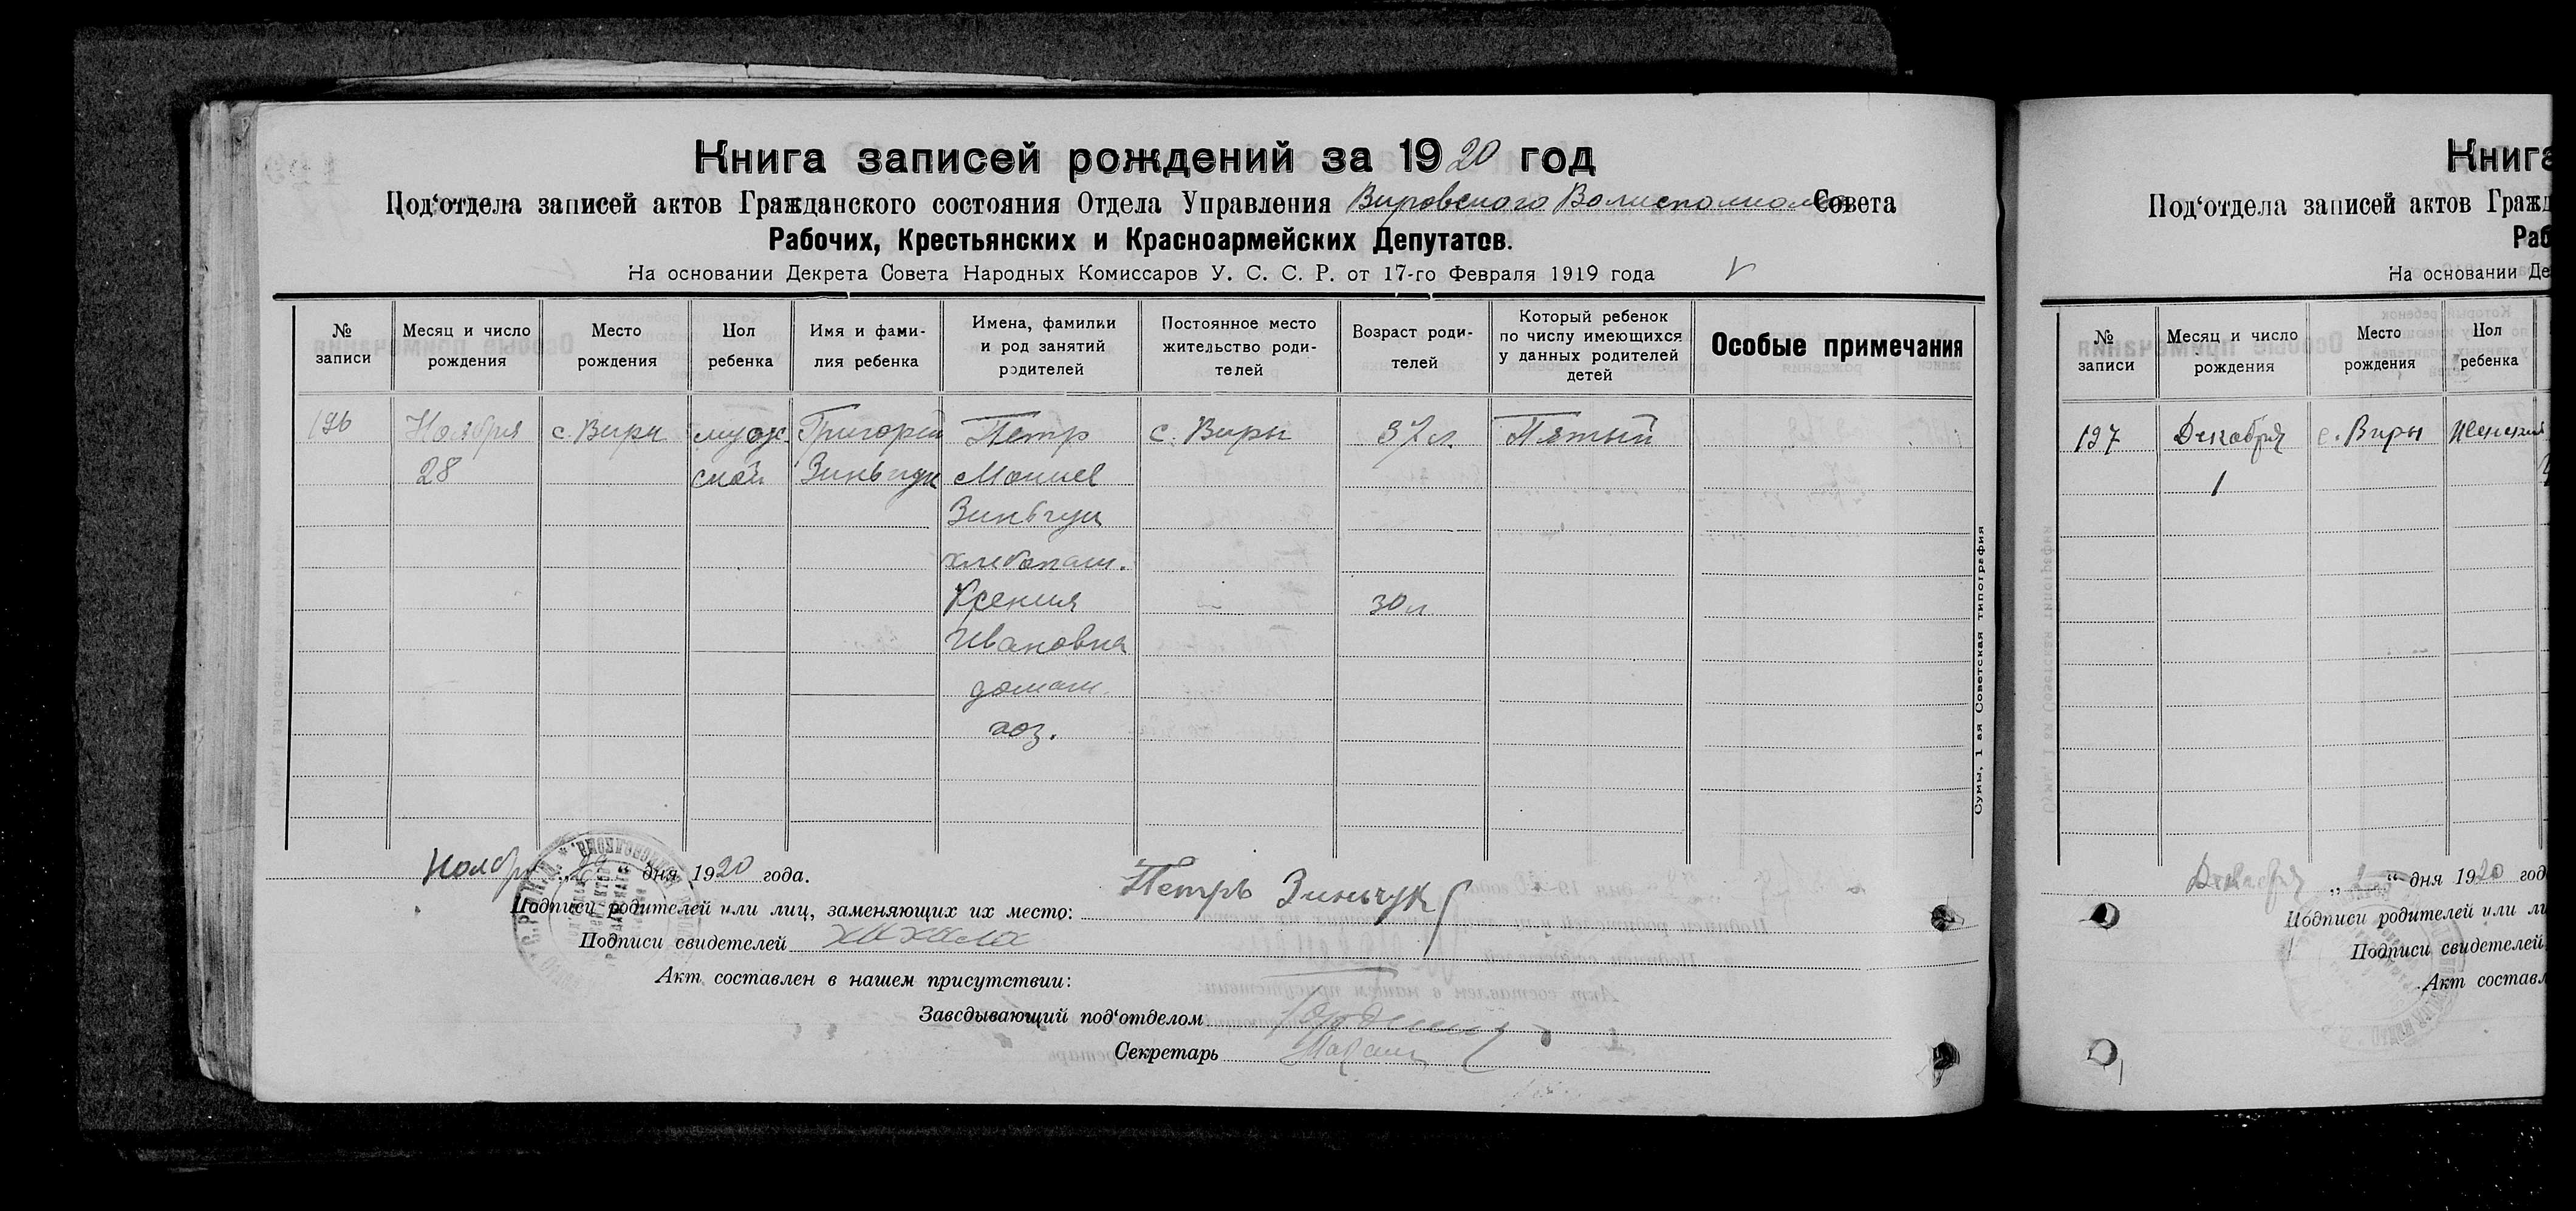 Книга записей рождений за 1920 год
Под‘отдела записей актов Гражданского состояния Отдела Управления Вировского Волисполкома Совета
Рабочих, Крестьянских и Красноармейских Депутатов.
На основании Декрета Совета Народных Комиссаров У. С. С. Р. от 17-го Февраля 1919 года
№ записи
Месяц и число рождения
Место рождения
Пол ребенка
Имя и фамилия ребенка
Имена, фамилии и род занятий родителей
Постоянное место жительство родителей
Возраст родителей
Который ребенок по числу имеющихся у данных родителей детей
Особые примечания
196 Ноября с. Виры мужс Григорий Петр с. Виры 37 л. Пятый
28 ской Зиньчук
Зиньчук
хлебопаш.
Ксения 30 л
Ивановна
домаш.
хоз.
Сумы, 1 ая Советская типография
Ноября „29“ дня 1920 года.
Подписи родителей или лиц, заменяющих их место: Петръ Зинчук
Подписи свидетелей
Акт составлен в нашем присутствии:
Заведывающий под‘отделом
Секретарь
Книга
Под‘отдела записей актов Гражд
Раб
На основании Де
№ записи
Месяц и число рождения
Место рождения
Пол ребенка
197 Декабря с. Виры Женский
1
Декабря „ “ дня 1920 год
Подписи родителей или ли
Подписи свидетелей
Акт составл